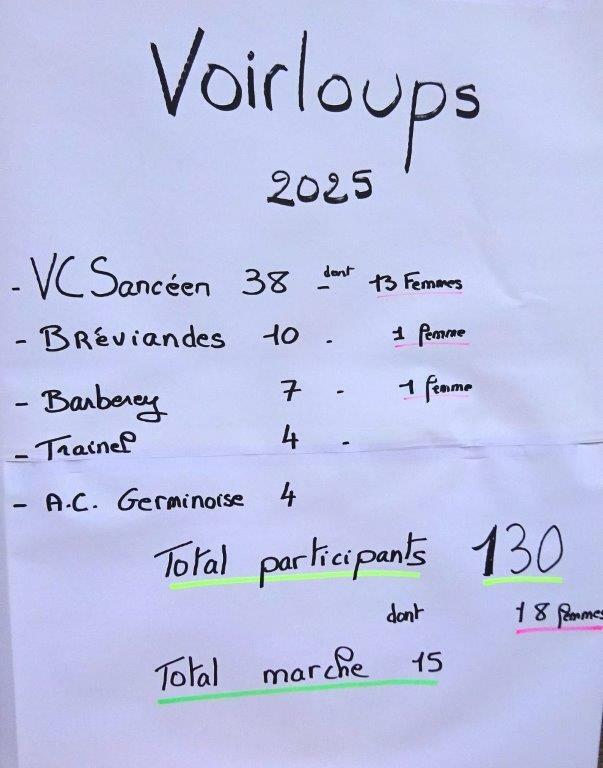 Voirloups
2025
- VC Sancéen 38 - dont 13 Femmes
- Bréviandes 10 - 1 femme
- Barberey 7 - 1 femme
- Trainel 4 -
- A.C. Germinoise 4
Total participants 130
dont 18 femmes
Total marche 15